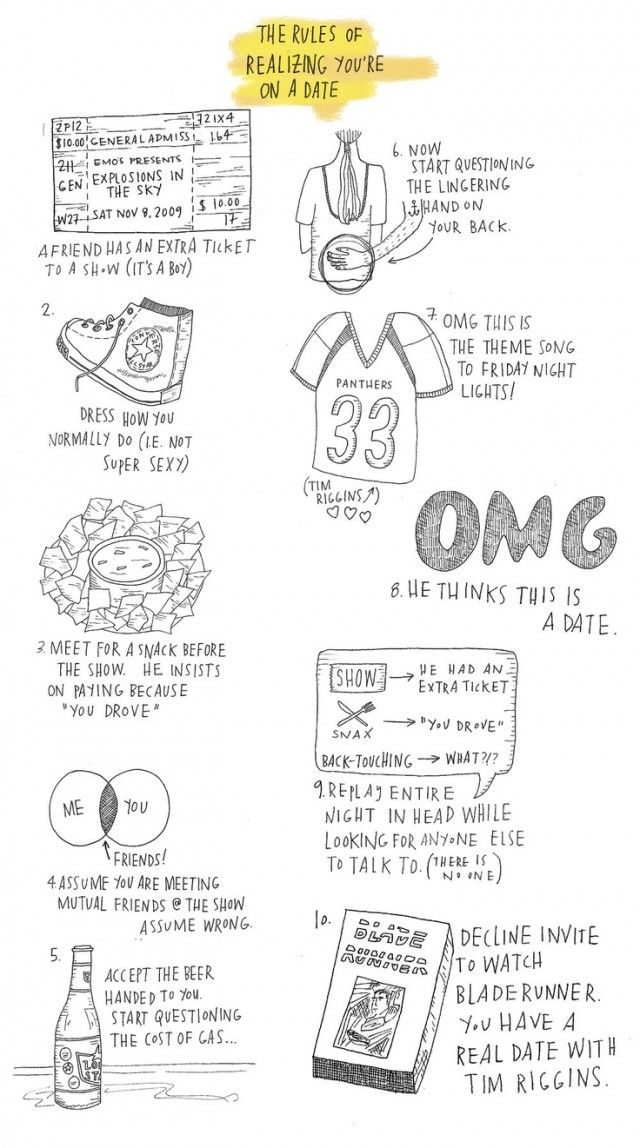 THE RULES OF
REALIZING YOU'RE
ON A DATE
1.
ZP12
721X4
$10.00 GENERAL ADMISS 1.64
211
GEN
EMO'S PRESENTS
EXPLOSIONS IN
THE SKY
$ 10.00
W27 SAT NOV 8, 2009 17
A FRIEND HAS AN EXTRA TICKET
TO A SHOW (IT'S A BOY)
2.
CONVERSE
ALL STAR
DRESS HOW YOU
NORMALLY DO (I.E. NOT
SUPER SEXY)
3. MEET FOR A SNACK BEFORE
THE SHOW. HE INSISTS
ON PAYING BECAUSE
"YOU DROVE"
ME YOU
FRIENDS!
4 ASSUME YOU ARE MEETING
MUTUAL FRIENDS @ THE SHOW
ASSUME WRONG.
5.
ACCEPT THE BEER
HANDED TO YOU.
START QUESTIONING
THE COST OF GAS...
6. NOW
START QUESTIONING
THE LINGERING
HAND ON
YOUR BACK.
7. OMG THIS IS
THE THEME SONG
TO FRIDAY NIGHT
LIGHTS!
PANTHERS
33
(TIM
RIGGINS)
OMG
8. HE THINKS THIS IS
A DATE.
SHOW HE HAD AN
EXTRA TICKET
SNAX "YOU DROVE"
BACK-TOUCHING WHAT?!?
9. REPLAY ENTIRE
NIGHT IN HEAD WHILE
LOOKING FOR ANYONE ELSE
TO TALK TO. (THERE IS
NO ONE)
10.
BLADE
RUNNER
DECLINE INVITE
TO WATCH
BLADERUNNER.
YOU HAVE A
REAL DATE WITH
TIM RIGGINS.